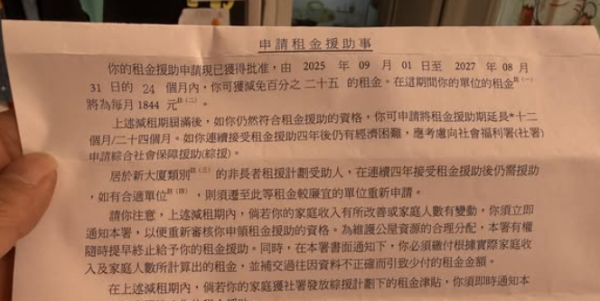 申請租金援助事
你的租金援助申請現已獲得批准，由 2025 年 09 月 01 日至 2027 年 08 月
31 日的 24 個月內，你可獲減免百分之 二十五 的租金。在這期間你的單位的租金註(一)
將為每月 1844 元註(二)。
上述減租期屆滿後，如你仍然符合租金援助的資格，你可申請將租金援助期延長*十二
個月/二十四個月。如你連續接受租金援助四年後仍有經濟困難，應考慮向社會福利署(社署)
申請綜合社會保障援助(綜援)。
居於新大廈類別註(三)的非長者租援計劃受助人，在連續四年接受租金援助後仍需援助
，如有合適單位註(四)，則須遷至此等租金較廉宜的單位重新申請。
請你注意，上述減租期內，倘若你的家庭收入有所改善或家庭人數有變動，你須立即
通知本署，以便重新審核你申領租金援助的資格。為維護公屋資源的合理分配，本署有權
隨時提早終止給予你的租金援助。同時，在本署書面通知下，你必須繳付根據實際家庭收
入及家庭人數所計算出的租金，並補交過往因資料不正確而引致少付的租金金額。
在上述減租期內，倘若你的家庭獲社署發放綜援計劃下的租金津貼，你須即時通知本